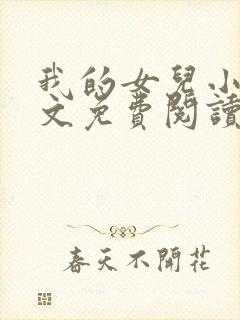 我的女兒小
文免費閱讀
春天不開花